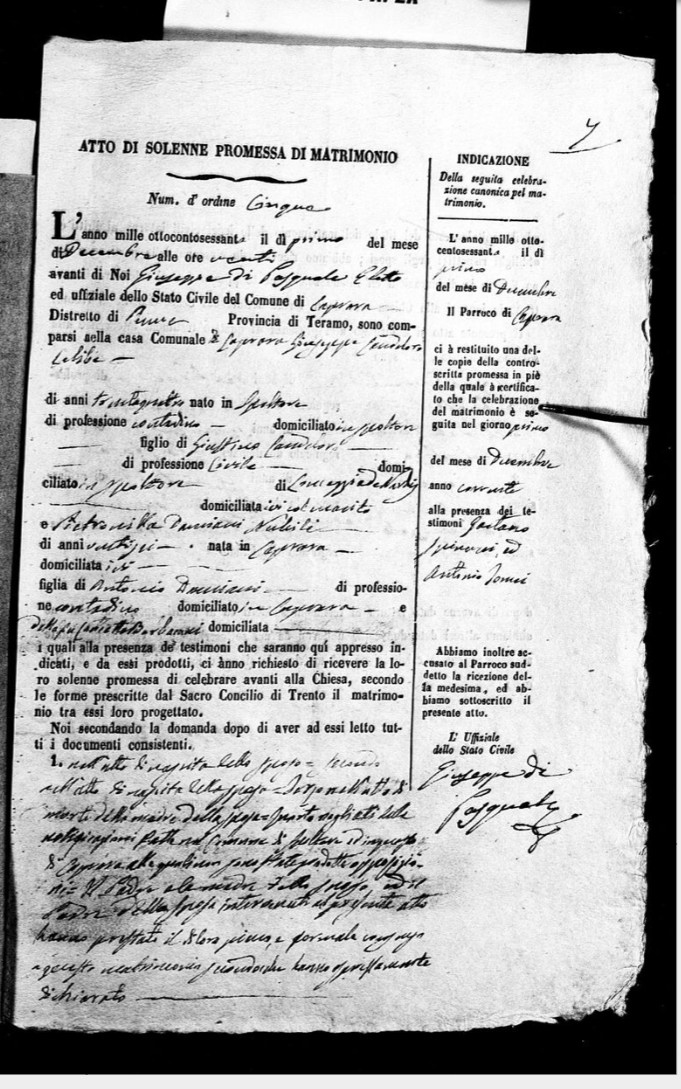 7
ATTO DI SOLENNE PROMESSA DI MATRIMONIO
Num. d'ordine Cinque
L'anno mille ottocontosessanta il dì primo del mese
di Decembre alle ore venti
avanti di Noi Giuseppe di Pasquale Eletto
ed uffiziale dello Stato Civile del Comune di Caprara
Distretto di Penne Provincia di Teramo, sono com-
parsi nella casa Comunale di Caprara Giuseppe
Celibe
di anni trentaquattro nato in Spoltore
di professione contadino domiciliato in Spoltore
figlio di Giustino
di professione Civile domi-
ciliato in Spoltore di
domiciliata ivi col marito
e Pietronilla Damiani Nubile
di anni nata in Caprara
domiciliata ivi
figlia di Antonio Damiani di professio-
ne contadino domiciliato in Caprara e
domiciliata
i quali alla presenza de' testimoni che saranno quì appresso in-
dicati, e da essi prodotti, ci ànno richiesto di ricevere la lo-
ro solenne promessa di celebrare avanti alla Chiesa, secondo
le forme prescritte dal Sacro Concilio di Trento il matrimo-
nio tra essi loro progettato.
Noi secondando la domanda dopo di aver ad essi letto tut-
ti i documenti consistenti.
1. nell'atto di nascita dello sposo = secondo
nell'atto di nascita della sposa = Terzo nell'atto di
morte della madre della sposa = quarto negli atti delle
notificazioni fatte nel Comune di Spoltore ed in questo
di Caprara
Il Padre e la madre dello sposo, ed il
Padre della sposa intervenuti al presente atto
hanno prestato il di loro pieno e formale consenso
a questo matrimonio secondoche hanno espressamente
dichiarato
INDICAZIONE
Della seguita celebra-
zione canonica pel ma-
trimonio.
L'anno mille otto-
centosessanta il dì
primo
del mese di Decembre
Il Parroco di Caprara
ci à restituito una del-
le copie della contro-
scritta promessa in piè
della quale à certifica-
to che la celebrazione
del matrimonio è se-
guita nel giorno primo
del mese di Decembre
anno corrente
alla presenza dei te-
stimoni Gaetano
ed
Antonio
Abbiamo inoltre ac-
cusato al Parroco sud-
detto la ricezione del-
la medesima, ed ab-
biamo sottoscritto il
presente atto.
L'Uffiziale
dello Stato Civile
Giuseppe di
Pasquale